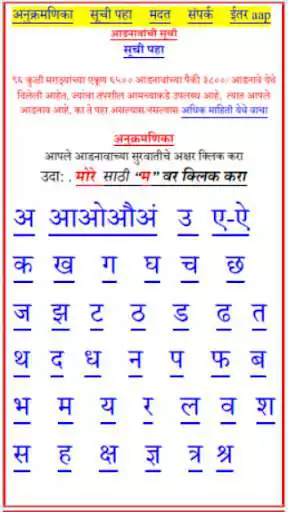 अनुक्रमणिका सुची पहा मदत संपर्क ईतर aap
आडनावांची सुची
सुची पहा
९६ कुळी मराठ्यांच्या एकूण ६५०० आडनावांच्या पैकी ३८००/ आडनावे येथे
दिलेली आहेत, ज्यांचा तपशील आमच्याकडे उपलब्ध आहे, त्यात आपले
आडनाव आहे, का ते पहा असल्यास/नसल्यास अधिक माहिती येथे वाचा
अनुक्रमणिका
आपले आडनावाच्या सुरवातीचे अक्षर क्लिक करा
उदा: . मोरे साठी "म" वर क्लिक करा
अ आओऔअं उ ए-ऐ
क ख ग घ च छ
ज झ ट ठ ड ढ त
थ द ध न प फ ब
भ म य र ल व श
स ह क्ष ज्ञ त्र श्र